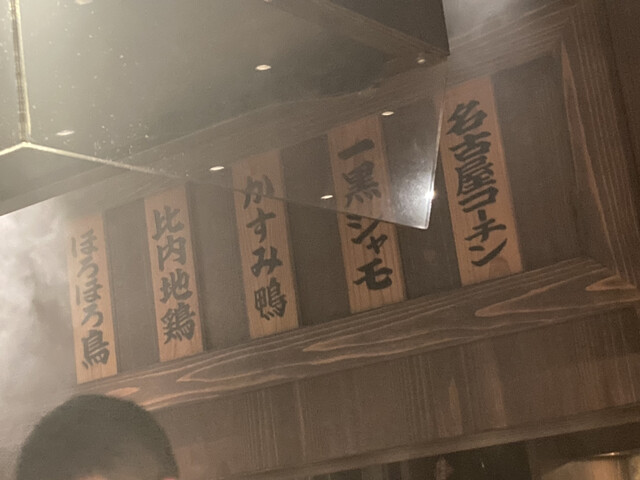 名古屋コーチン
一黒シャモ
かすみ鴨
比内地鶏
ほろほろ鳥